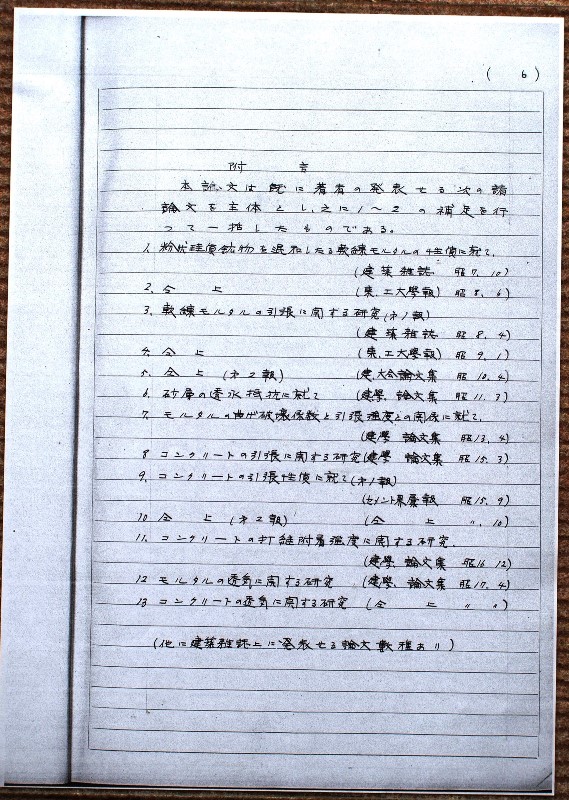 ( 6 )
附 言
本論文は既に著者の発表せる次の諸
論文を主体とし、之に1〜2の補足を行
って一括したものである。
1. 粉状珪質鉱物を混和したる軟練モルタルの性質に就て、
(建築雑誌 昭7, 10)
2. 仝 上 (東, 工大學報) 昭8, 6)
3. 軟練モルタルの引張に関する研究(オ1報)
(建築雑誌 昭8, 4)
4. 仝 上 (東, 工大學報) 昭9, 1)
5. 仝 上 (オ2報) (建, 大会論文集 昭10, 4)
6. 砂層の透水抵抗に就て (建學, 論文集 昭11, 3)
7. モルタルの曲げ破壊係数と引張強度との関係に就て、
(建學, 論文集 昭13, 4)
8 コンクリートの引張に関する研究 (建學, 論文集 昭15, 3)
9. コンクリートの引張性質に就て(オ1報)
(セメント界彙報 昭15, 9)
10 仝 上 (オ2報) (仝 上 〃, 10)
11. コンクリートの打継附着強度に関する研究.
(建學, 論文集 昭16 12)
12 モルタルの透気に関する研究 (建學, 論文集 昭17, 4)
13 コンクリートの透気に関する研究 (仝 上 〃 〃)
(他に建築雑誌上に発表せる論文数種あり)